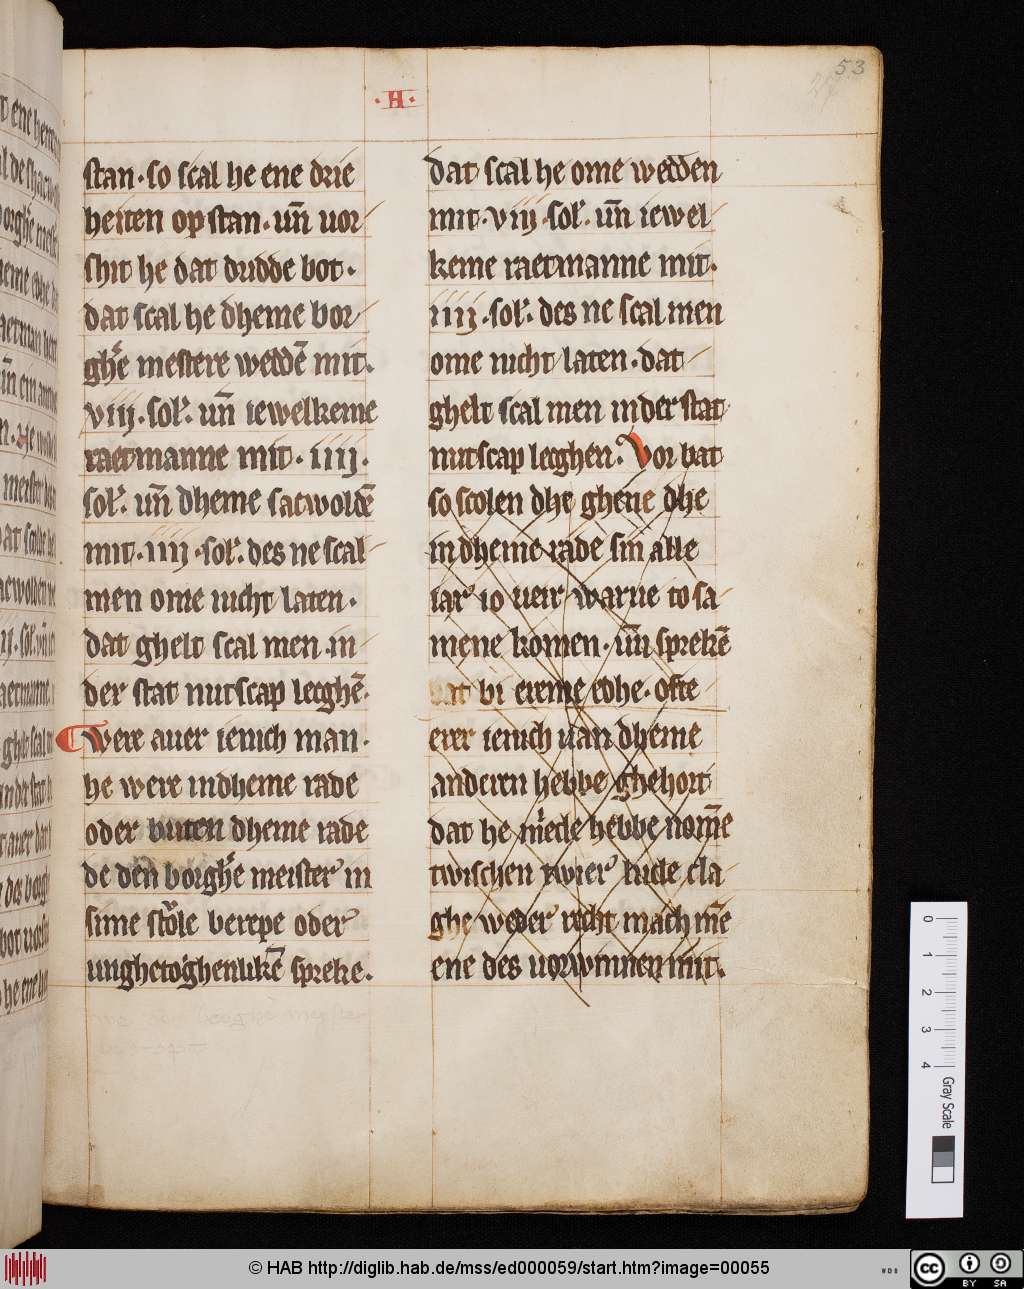 53
·H·
stan · so scal he ene drie
heiten op stan · un̄ uor
shit he dat dudde bot ·
dat scal he dheme bor
ghe mestere weddē mit ·
viij · sol'. un̄ iewelkeme
raetmanne mit · iiij ·
sol'. un̄ dheme sacwoldē
mit · iiij · sol'. des ne scal
men ome nicht laten ·
dat ghelt scal men in
der stat nutscap lecghē ·
were auer ienich man ·
he were indheme rade
oder buten dheme rade
de den borghe meister in
sime stole berepe oder
unghetoghenlikē spreke .
dat scal he ome wedden
mit · viij · sol'. un̄ iewel
keme raetmanne mit ·
iiij · sol'. des ne scal men
ome nicht laten · dat
ghelt scal men inder stat
nutscap lecghen · Vor bat
so scolen dhe ghene dhe
indheme rade sin alle
iar io veir warue to sa
mene komen · un̄ sprekē
dat bi ereme edhe · ofte
erer ienich uan dheme
anderen hebbe ghehort
dat he mede hebbe nome
twischen twier lude cla
ghe weder recht mach me
ene des uorwinnen mit .
0 1 2 3 4
Gray Scale
© HAB http://diglib.hab.de/mss/ed000059/start.htm?image=00055
WDB
cc BY SA